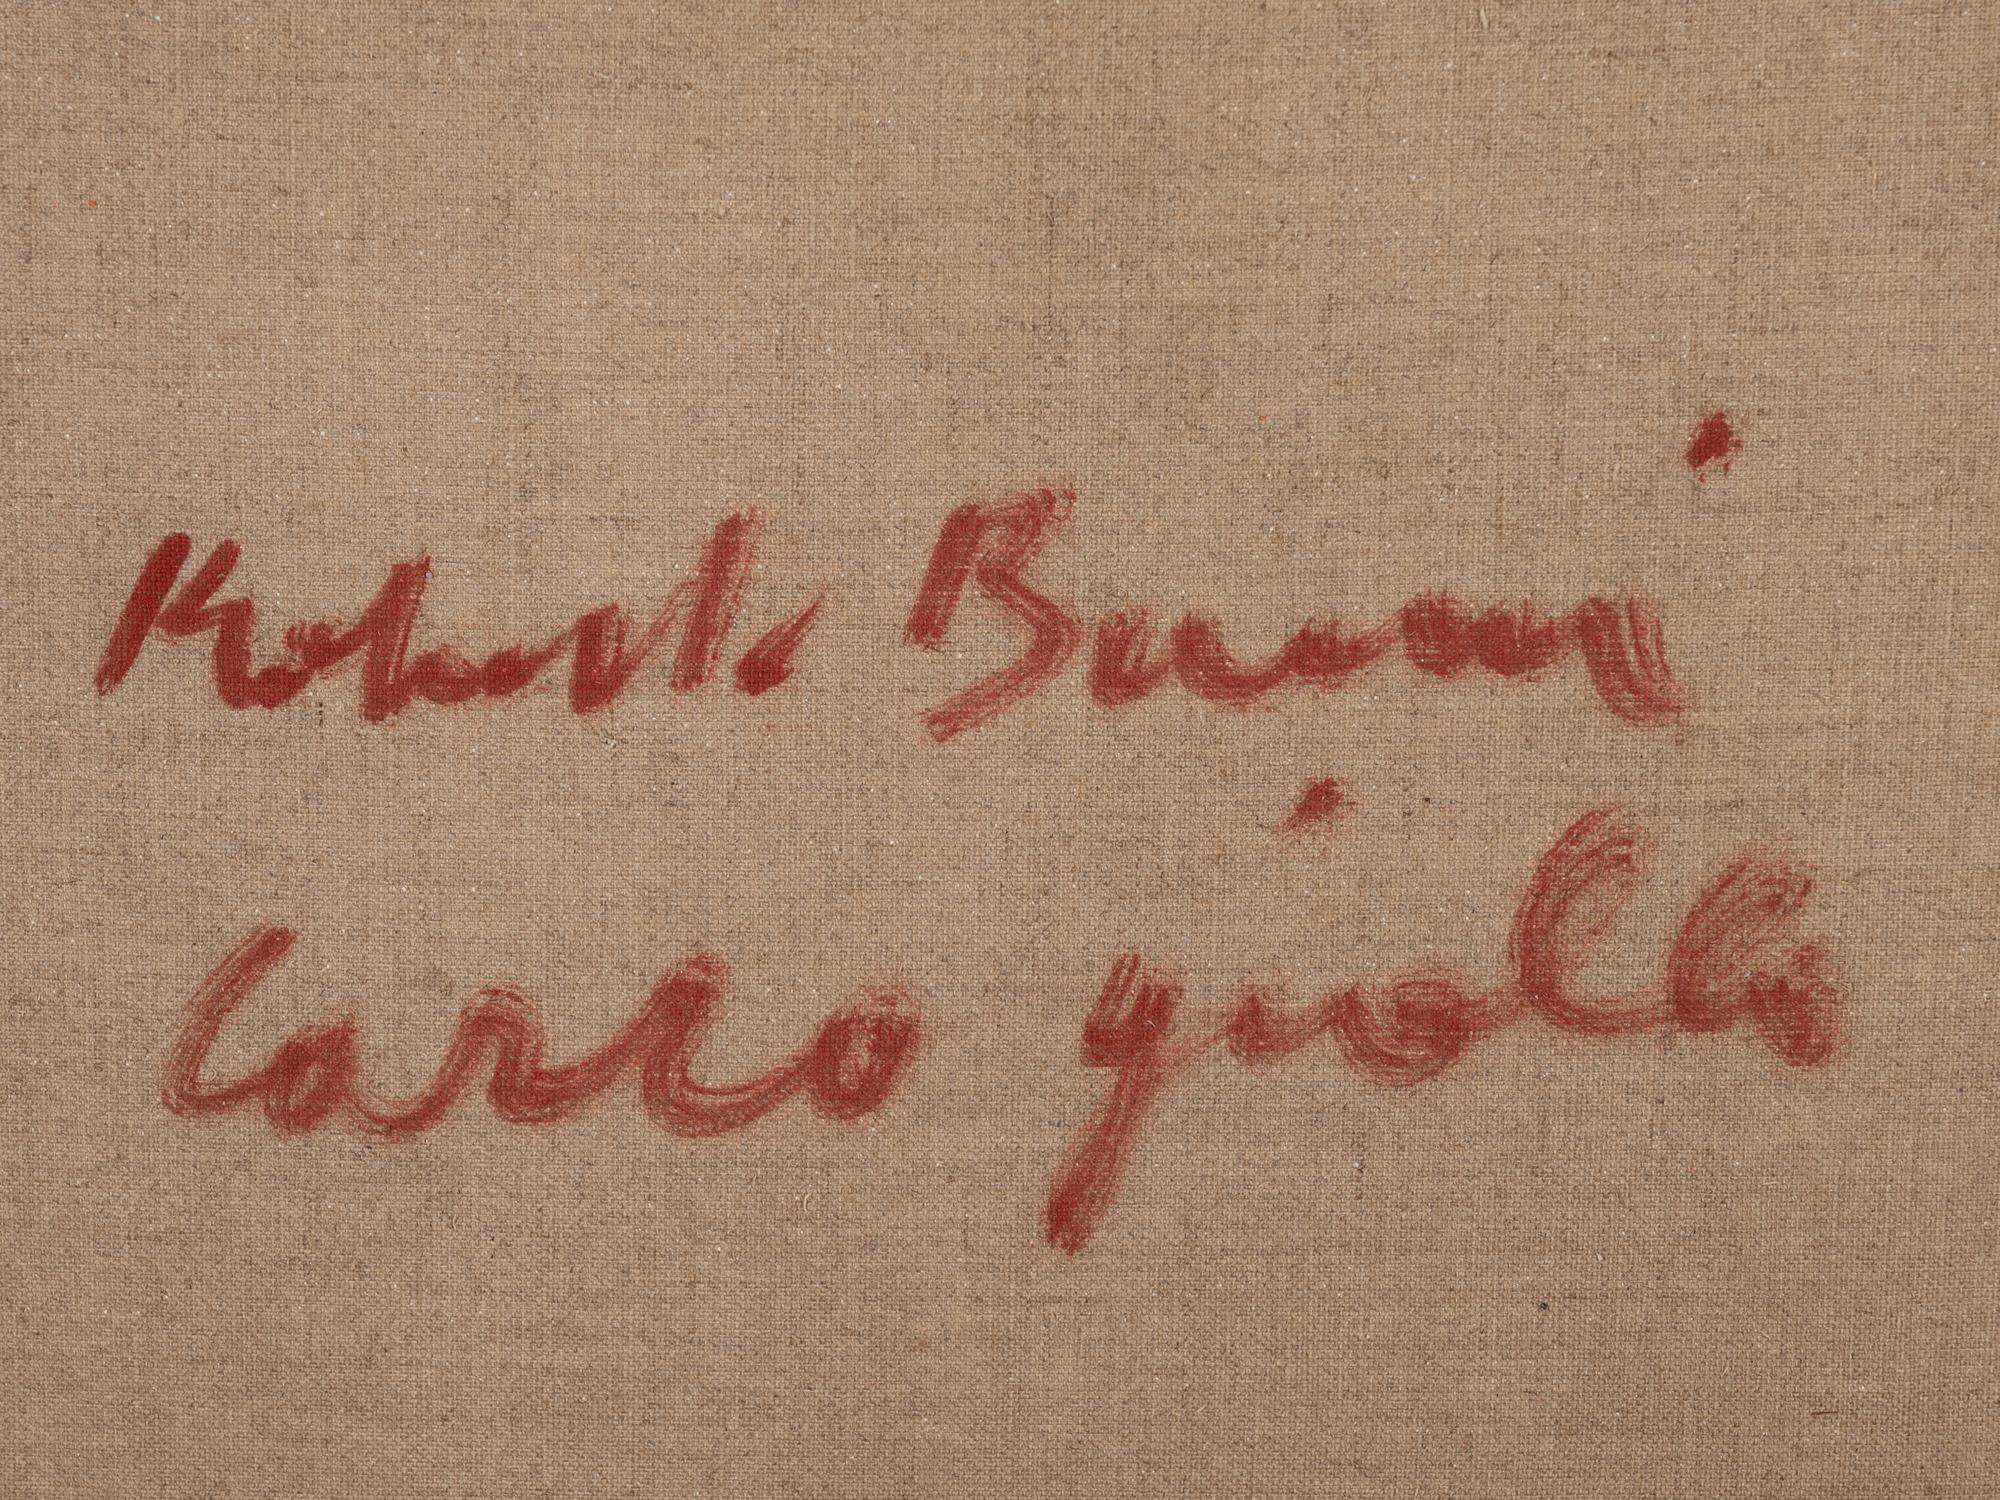 Roberto Burini
Carro giallo